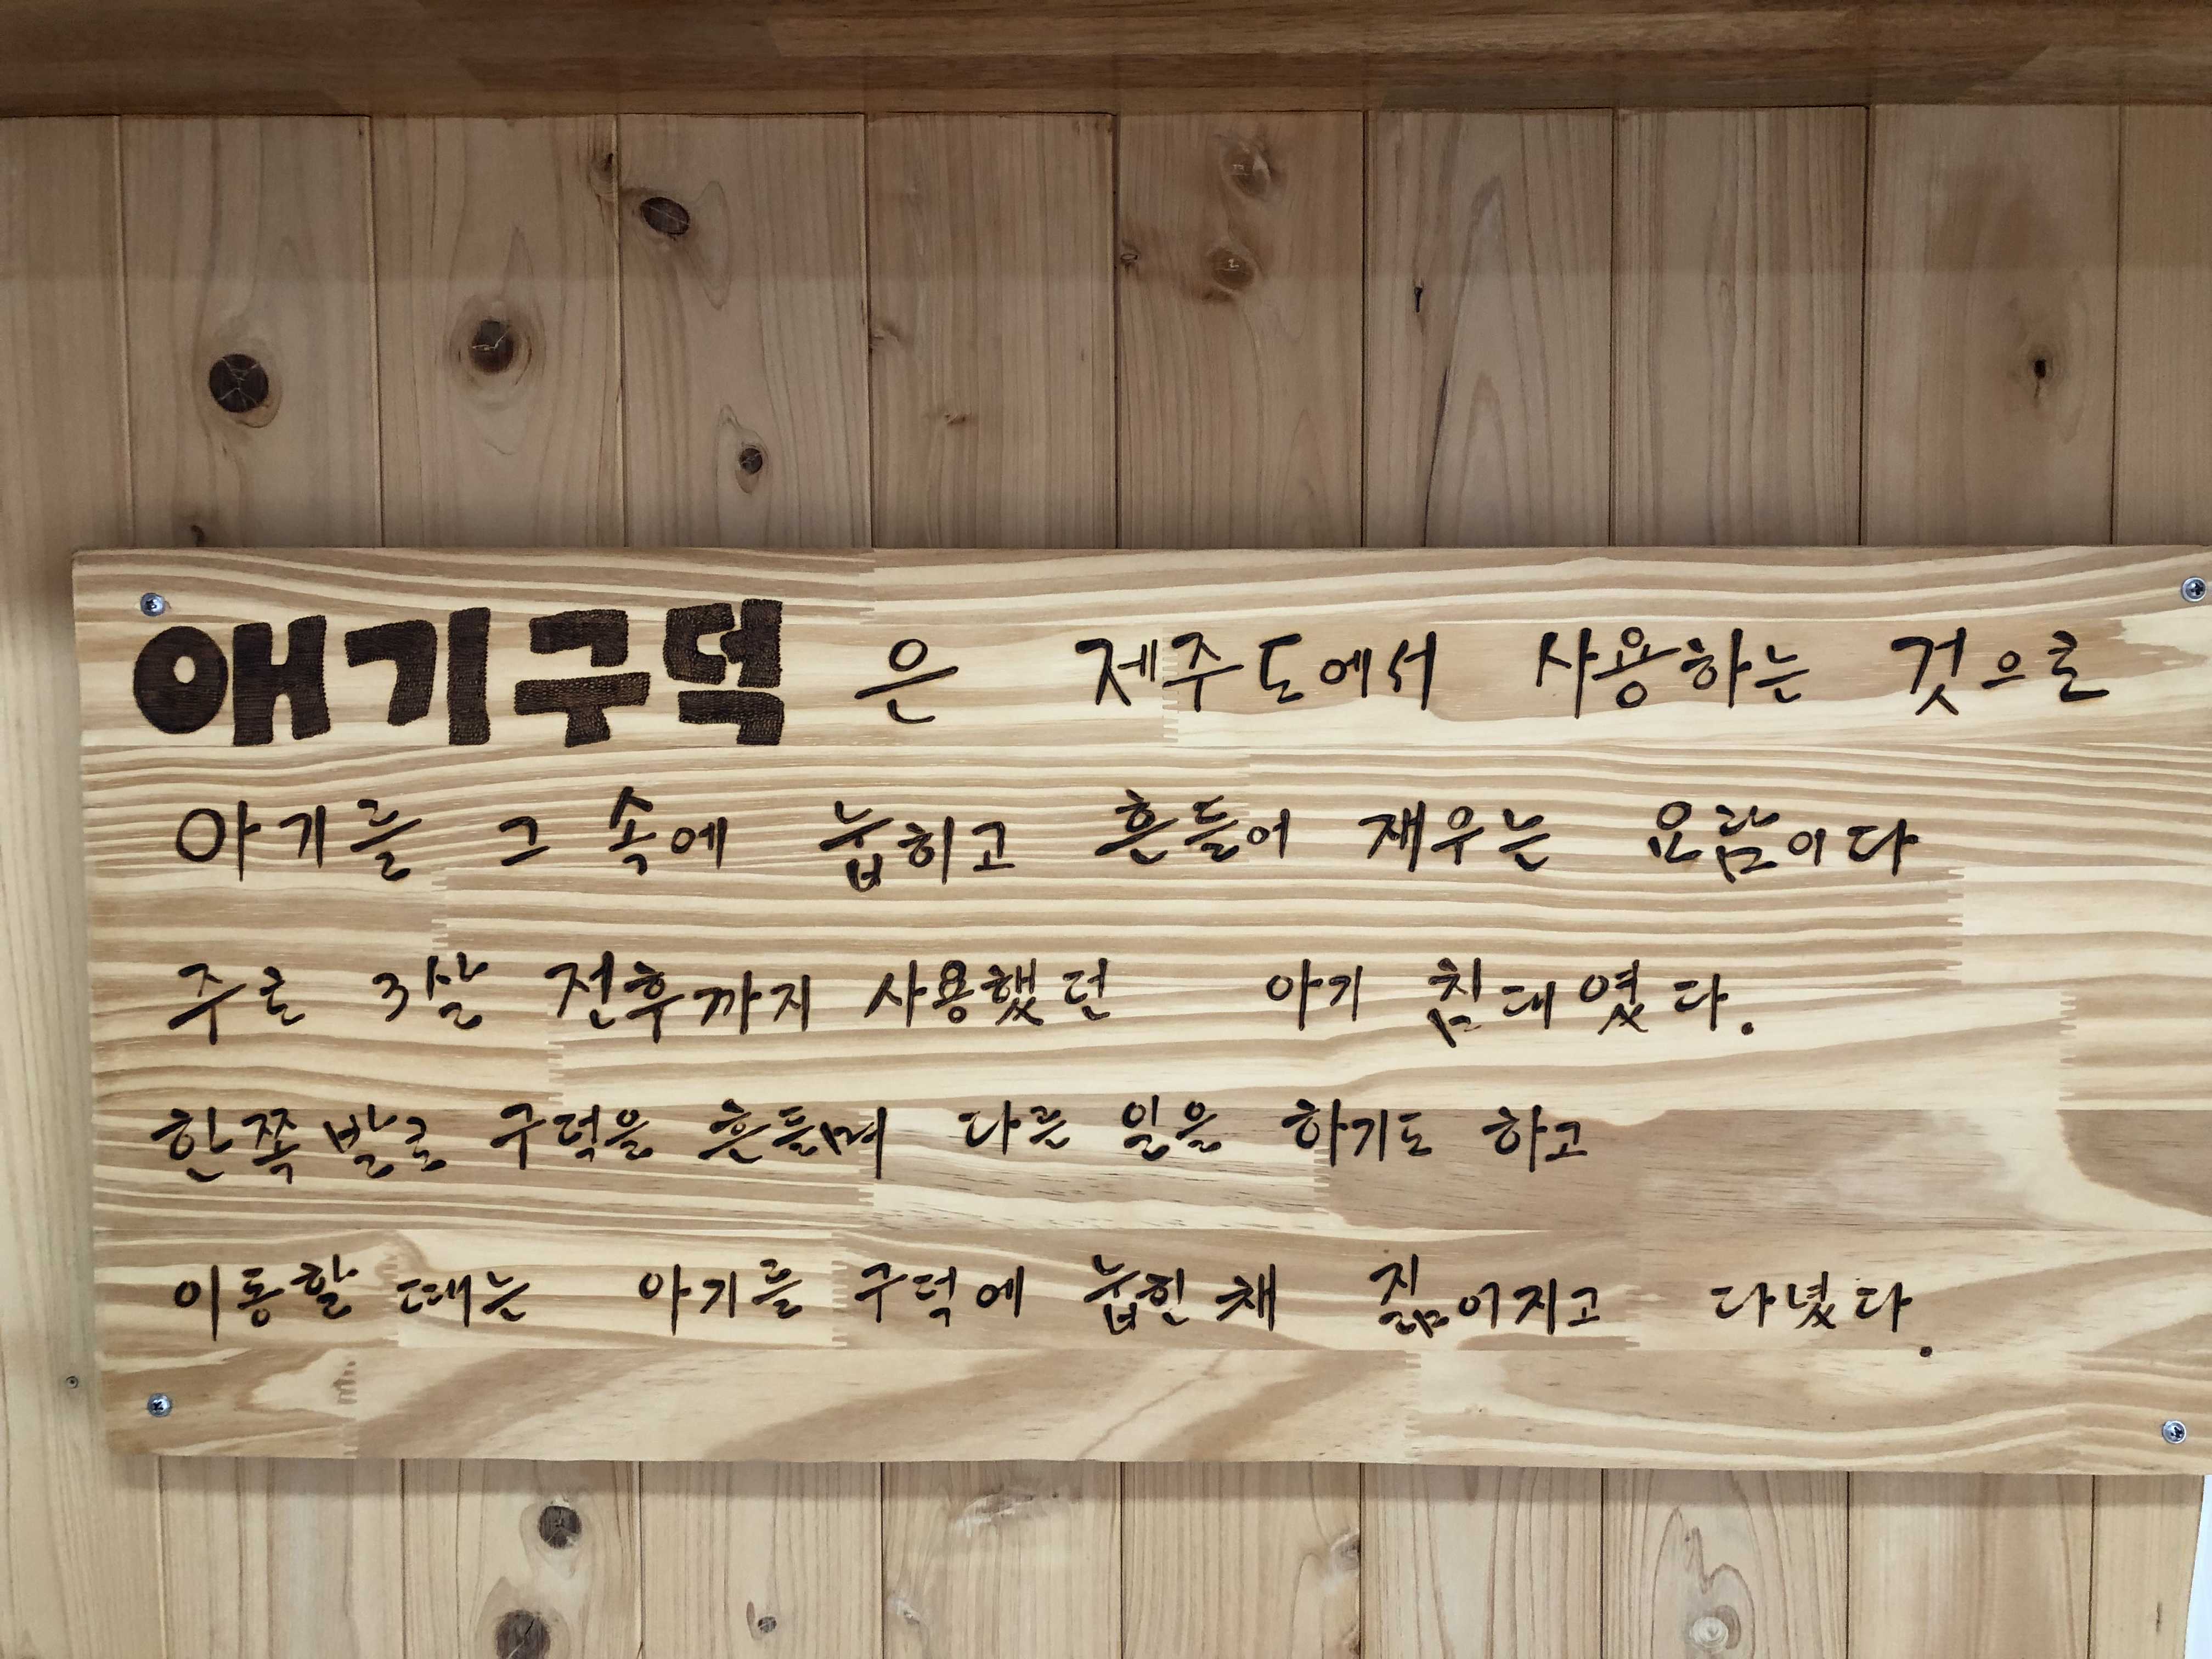 애기구덕 은 제주도에서 사용하는 것으로
아기를 그 속에 눕히고 흔들어 재우는 요람이다
주로 3살 전후까지 사용했던 아기 침대였다.
한쪽 발로 구덕을 흔들며 다른 일을 하기도 하고
이동할 때는 아기를 구덕에 눕힌 채 짊어지고 다녔다.